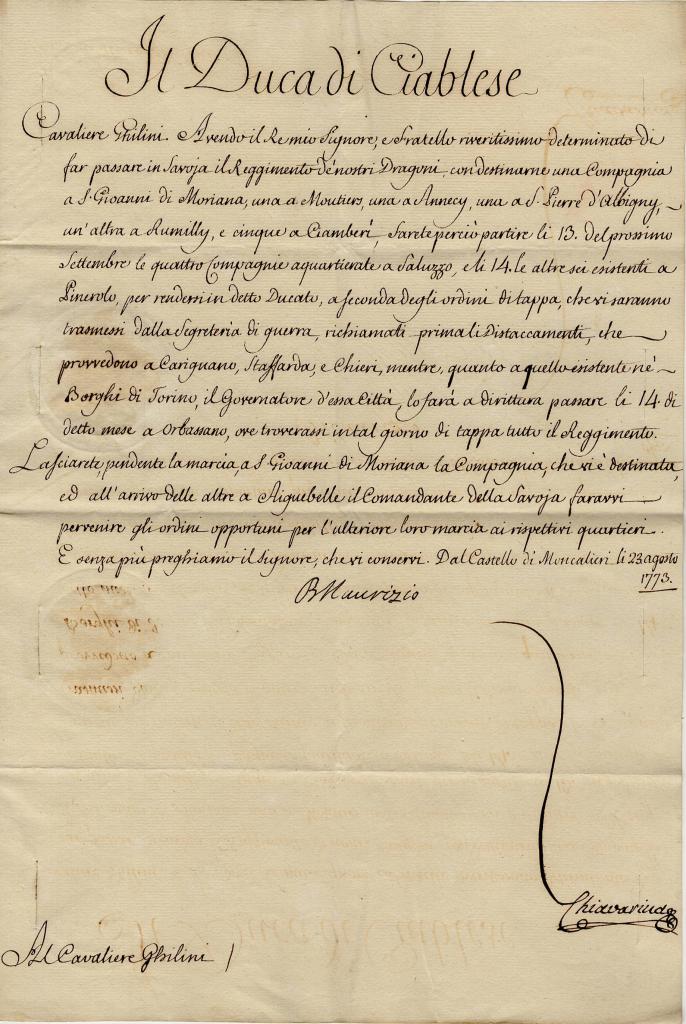 Il Duca di Ciablese
Cavaliere Ghilini. Avendo il Re mio Signore, e Fratello riveritissimo determinato di
far passare in Savoja il Reggimento de' nostri Dragoni, con destinarne una Compagnia
a S. Gioanni di Moriana, una a Moutiers, una a Annecy, una a S. Pierre d'Albigny,
un' altra a Rumilly, e cinque a Ciamberì, Sarete perciò partire li 13. del prossimo
Settembre le quattro Compagnie aquartierate a Saluzzo, e li 14. le altre sei esistenti a
Pinerolo, per rendersi in detto Ducato, a seconda degli ordini di tappa, che vi saranno
trasmessi dalla Segreteria di guerra, richiamati prima li Distaccamenti, che
provvedono a Carignano, Staffarda, e Chieri, mentre, quanto a quello esistente né
Borghi di Torino, il Governatore d'essa Città, lo farà a dirittura passare li 14. di
detto mese a Orbassano, ove troverassi in tal giorno di tappa tutto il Reggimento.
Lasciarete, pendente la marcia, a S. Gioanni di Moriana la Compagnia, che vi è destinata,
ed all' arrivo delle altre a Aiguebelle il Comandante della Savoja faravvi
pervenire gli ordini opportuni per l'ulteriore loro marcia ai rispettivi quartieri.
E senza più preghiamo il Signore, che vi conservi. Dal Castello di Moncalieri li 23 agosto
1773.
B Maurizio
Chiavarina
Al Cavaliere Ghilini